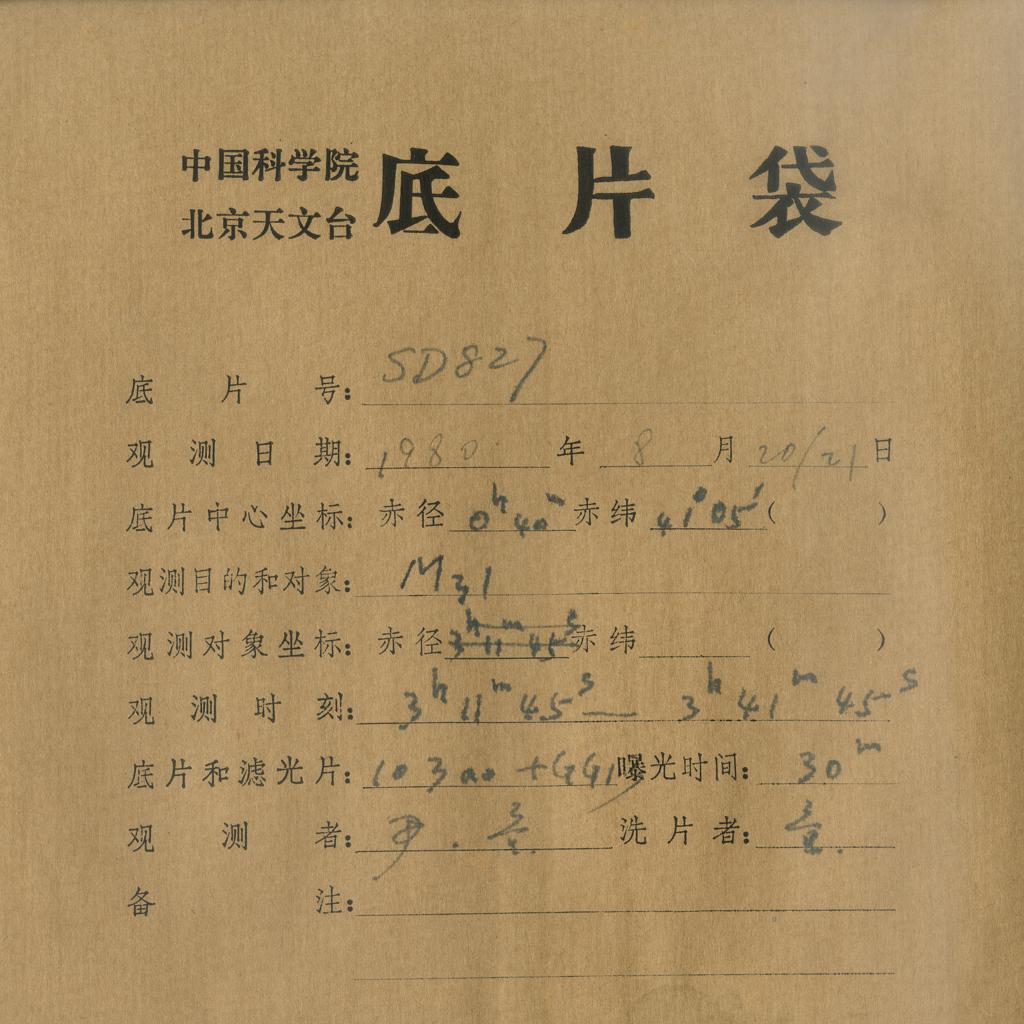 中国科学院
北京天文台
底片袋
底片号: SD827
观测日期: 1980年8月20/21日
底片中心坐标: 赤径 0h40m 赤纬 41°05′ ( )
观测目的和对象: M31
观测对象坐标: 赤径 3h11m45s 赤纬 ( )
观测时刻: 3h11m45s — 3h41m45s
底片和滤光片: 103aO+GG1 曝光时间: 30m
观测者: 尹. 洗片者:
备注: